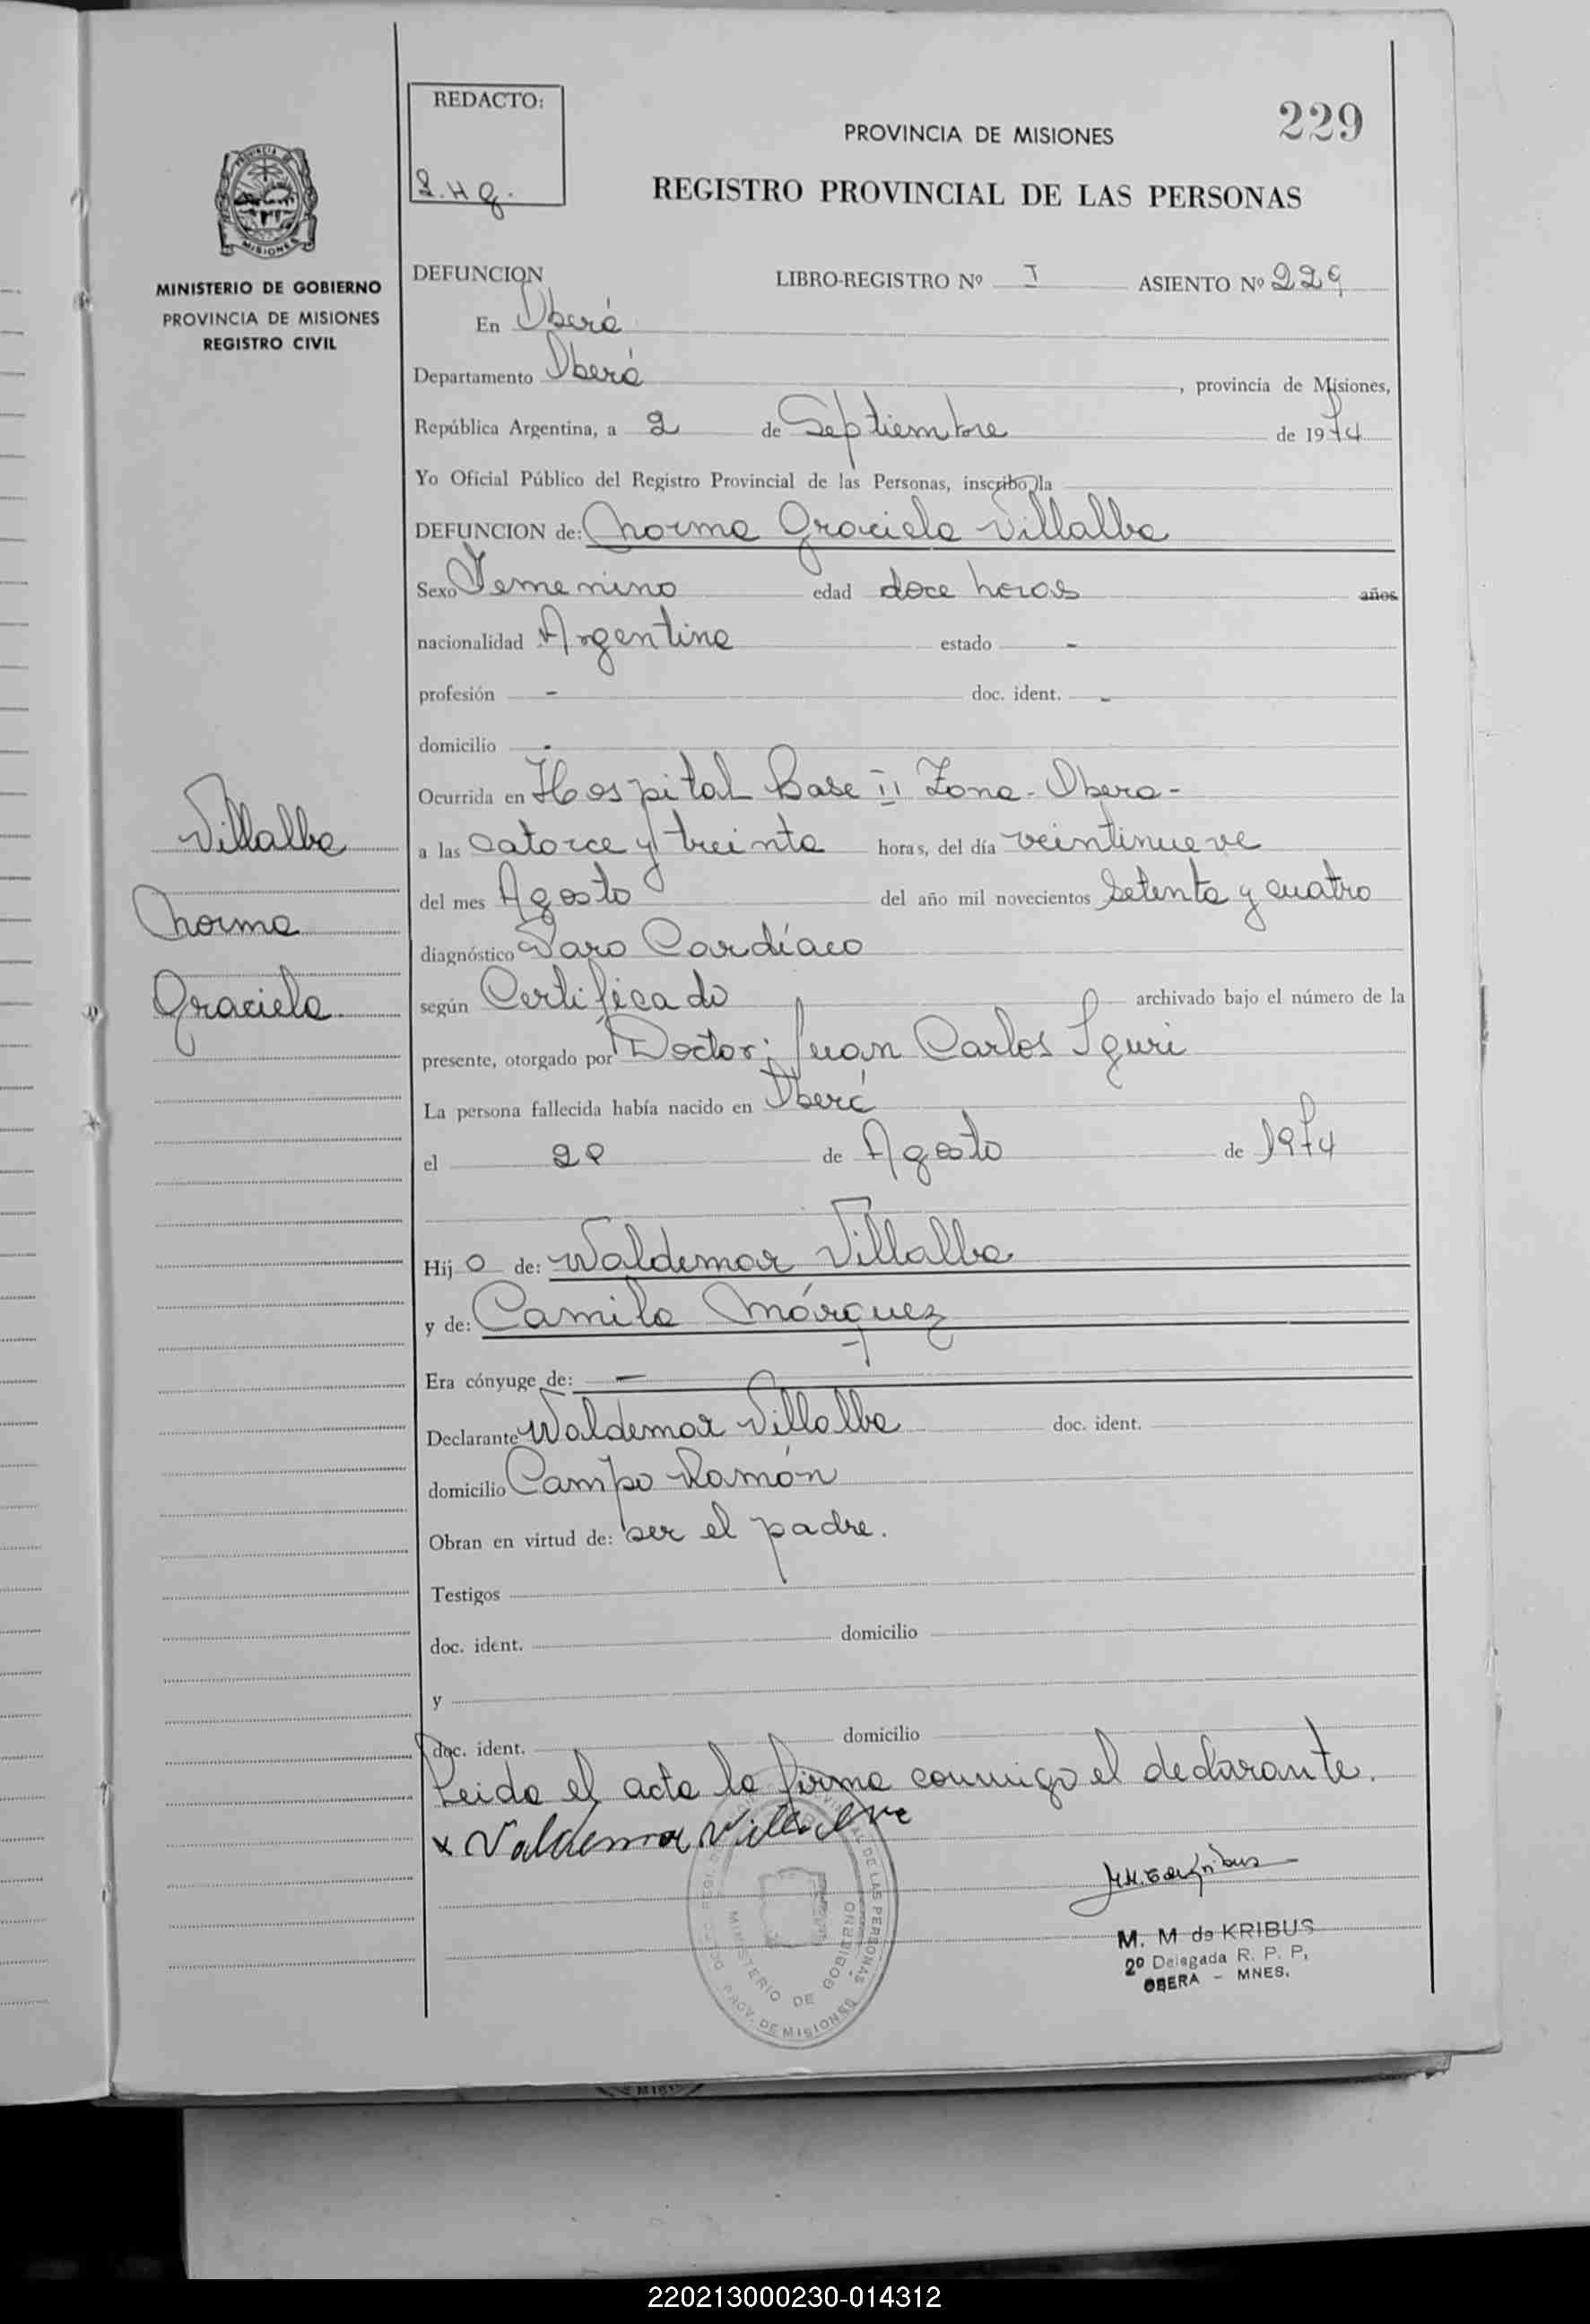 REDACTO:
PROVINCIA DE MISIONES
229
REGISTRO PROVINCIAL DE LAS PERSONAS
MINISTERIO DE GOBIERNO
PROVINCIA DE MISIONES
REGISTRO CIVIL
DEFUNCION LIBRO-REGISTRO Nº I ASIENTO Nº 229
En Oberá
Departamento Oberá, provincia de Misiones,
República Argentina, a 2 de Septiembre de 1974
Yo Oficial Público del Registro Provincial de las Personas, inscribo la
DEFUNCION de: Norma Graciela Villalba
Sexo Femenino edad doce horas años
nacionalidad Argentina estado -
profesión - doc. ident. -
domicilio -
Ocurrida en Hospital Base II Zona - Obera -
a las catorce y treinta horas, del día veintinueve
del mes Agosto del año mil novecientos Setenta y cuatro
diagnóstico Paro Cardíaco
según Certificado archivado bajo el número de la
presente, otorgado por Doctor: Juan Carlos
La persona fallecida había nacido en Oberá
el de Agosto de 1974
Hij o de: Waldemar Villalba
y de: Camila Márquez
Era cónyuge de: -
Declarante Waldemar Villalba doc. ident.
domicilio Campo Ramón
Obran en virtud de: ser el padre.
Testigos
doc. ident. domicilio
y
doc. ident. domicilio
Leida el acta la firma conmigo el declarante.
x Valdemar
Villalba
Norma
Graciela
MINISTERIO DE GOBIERNO
PROV. DE MISIONES
M. M de KRIBUS
2º Delegada R. P. P,
OBERA - MNES.
220213000230-014312